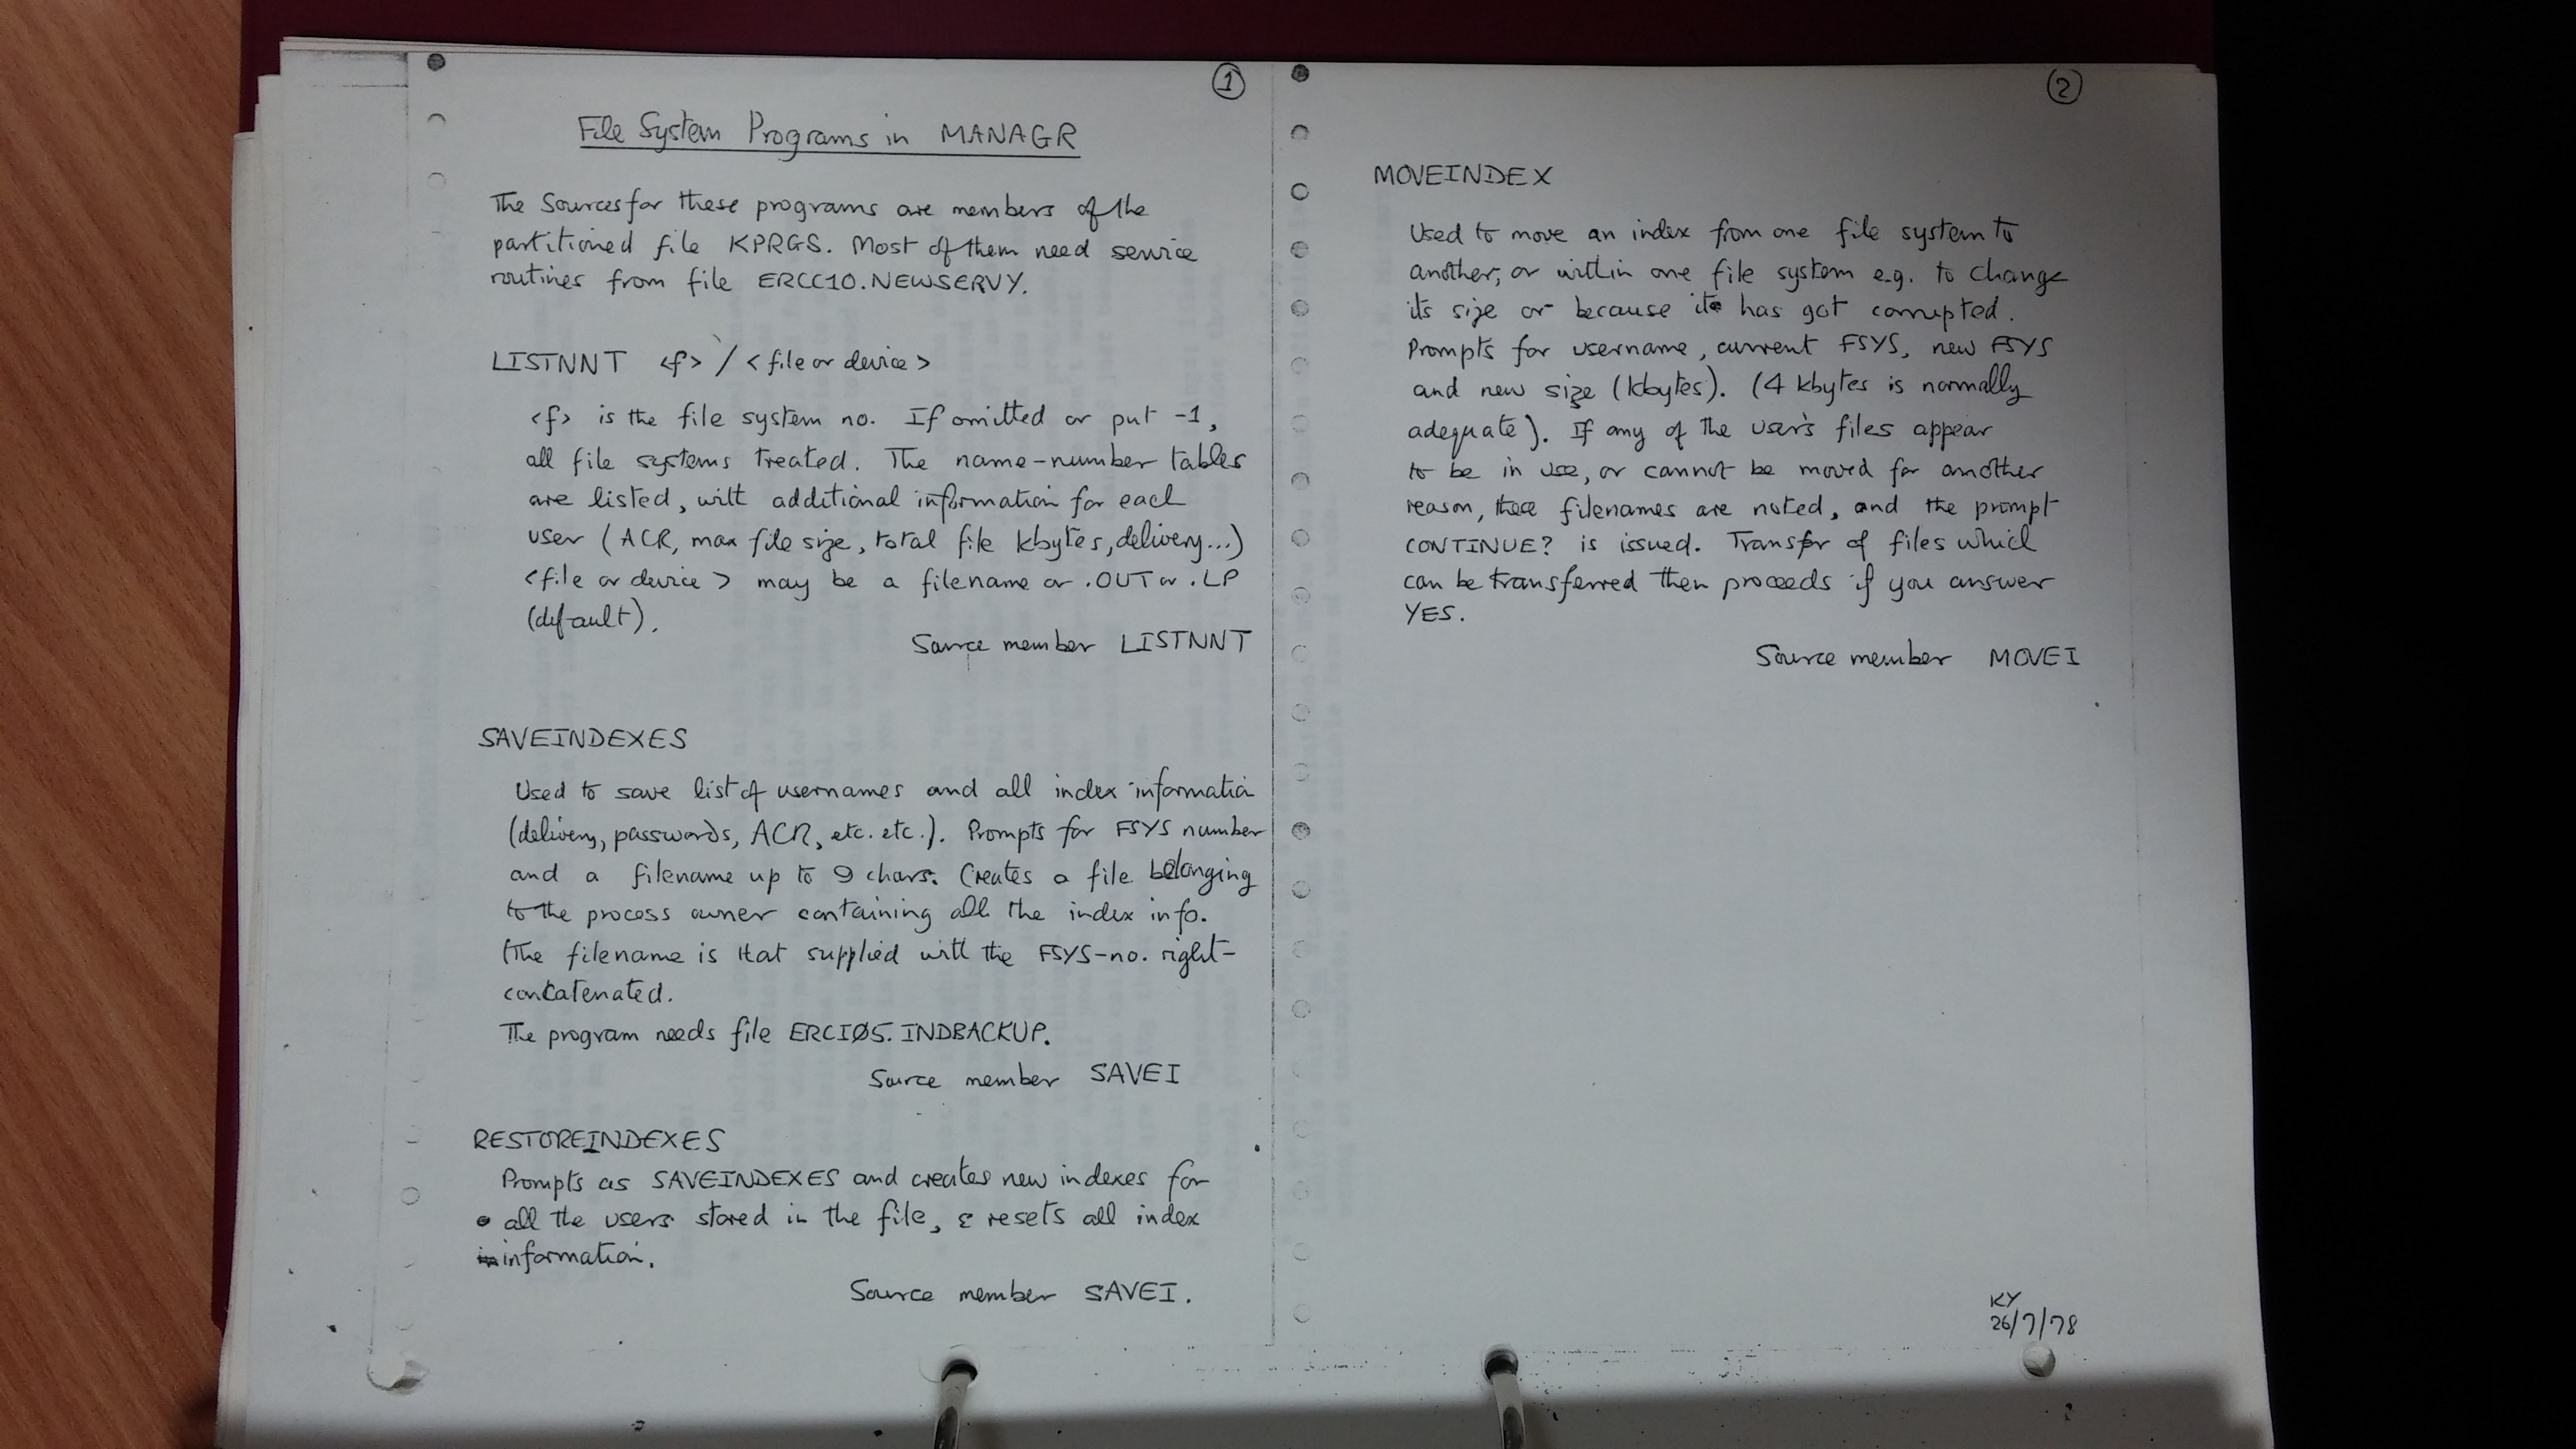 ①
File System Programs in MANAGR
The Sources for these programs are members of the
partitioned file KPRGS. Most of them need service
routines from file ERCC10.NEWSERVY.
LISTNNT <f> / <file or device>
<f> is the file system no. If omitted or put -1,
all file systems treated. The name-number tables
are listed, with additional information for each
user (ACR, max file size, total file kbytes, delivery...)
<file or device> may be a filename or .OUT or .LP
(default).
Source member LISTNNT
SAVEINDEXES
Used to save list of usernames and all index information
(delivery, passwords, ACR, etc. etc.). Prompts for FSYS number
and a filename up to 9 chars. Creates a file belonging
to the process owner containing all the index info.
(The filename is that supplied with the FSYS-no. right-
concatenated.
The program needs file ERCI05.INDBACKUP.
Source member SAVEI
RESTOREINDEXES
Prompts as SAVEINDEXES and creates new indexes for
all the users stored in the file, & resets all index
information.
Source member SAVEI.
②
MOVEINDEX
Used to move an index from one file system to
another, or within one file system e.g. to change
its size or because it has got corrupted.
Prompts for username, current FSYS, new FSYS
and new size (kbytes). (4 kbytes is normally
adequate). If any of the user's files appear
to be in use, or cannot be moved for another
reason, these filenames are noted, and the prompt
CONTINUE? is issued. Transfer of files which
can be transferred then proceeds if you answer
YES.
Source member MOVEI
KY
26/7/78